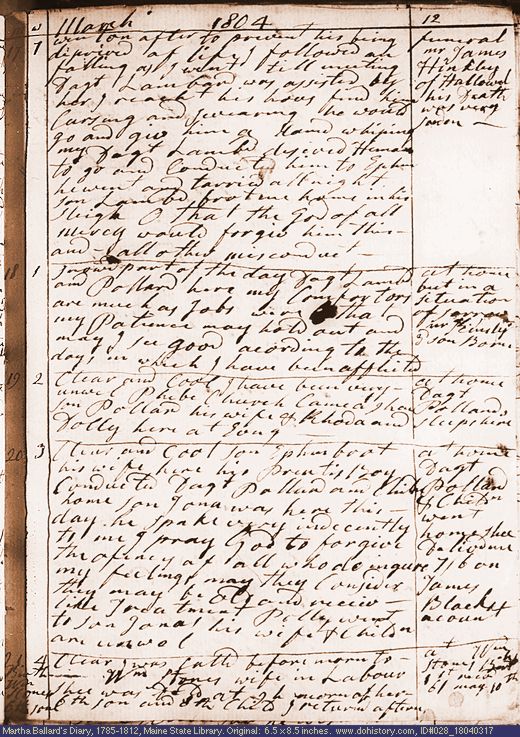 March 1804 12
7 went on after to prevent his being
deprived of life I followed and
falling as I went till meeting
Dagt Lambard was assisted by
her I reacht his hous find him
Cursing and swearing he would
go and giv him a whiping
my Dagt Lambd desired
to go and Conducted him to Ephm
he went and tarried all night
son Lambd brot me home in his
sleigh O that the God of all
mercy would forgiv him this
and all other misconduct
funeral
mr James
Hinkley
of Hallowel
his Death
was very
18 1 part of the day Dagt Lambd
and Pollard here my Comfortors
are much as Jobs were O that
my Patience may hold out and
may I see good acording to the
days in which I have been afflictd
at home
but in a
situation
of sorrow
son Born
19 2 Clear and Cool I have been very
unwel Phebe Church Came
son Pollard his wife & Rhoda and
Dolly here at Evng
at home
Dagt
Pollard
sleeps here
20 3 Clear and Cool son Ephm brot
his wife here his Prentis Boy
Conducted Dagt Pollard and Childn
home son Jona was here this
day he spake very indecently
to me I pray God to forgive
the of all who do injure
my feelings may they Consider
they may be old and receiv
like Treatment Polly went
to son Jonas his wife & Childn
are unwel
at home
Dagt
Pollard
& Childn
went
home shee
7/6 on
James
Blacks
acount
4 Clear I was calld before morn to
Wm Stones wife in Labour
shee was at 2 h morn of her
6th son and 8th Child I return after
at Wm
Stones Birth
1st
Martha Ballard's Diary, 1785-1812, Maine State Library. Original: 6.5 x 8.5 inches. www.dohistory.com, ID#028_18040317